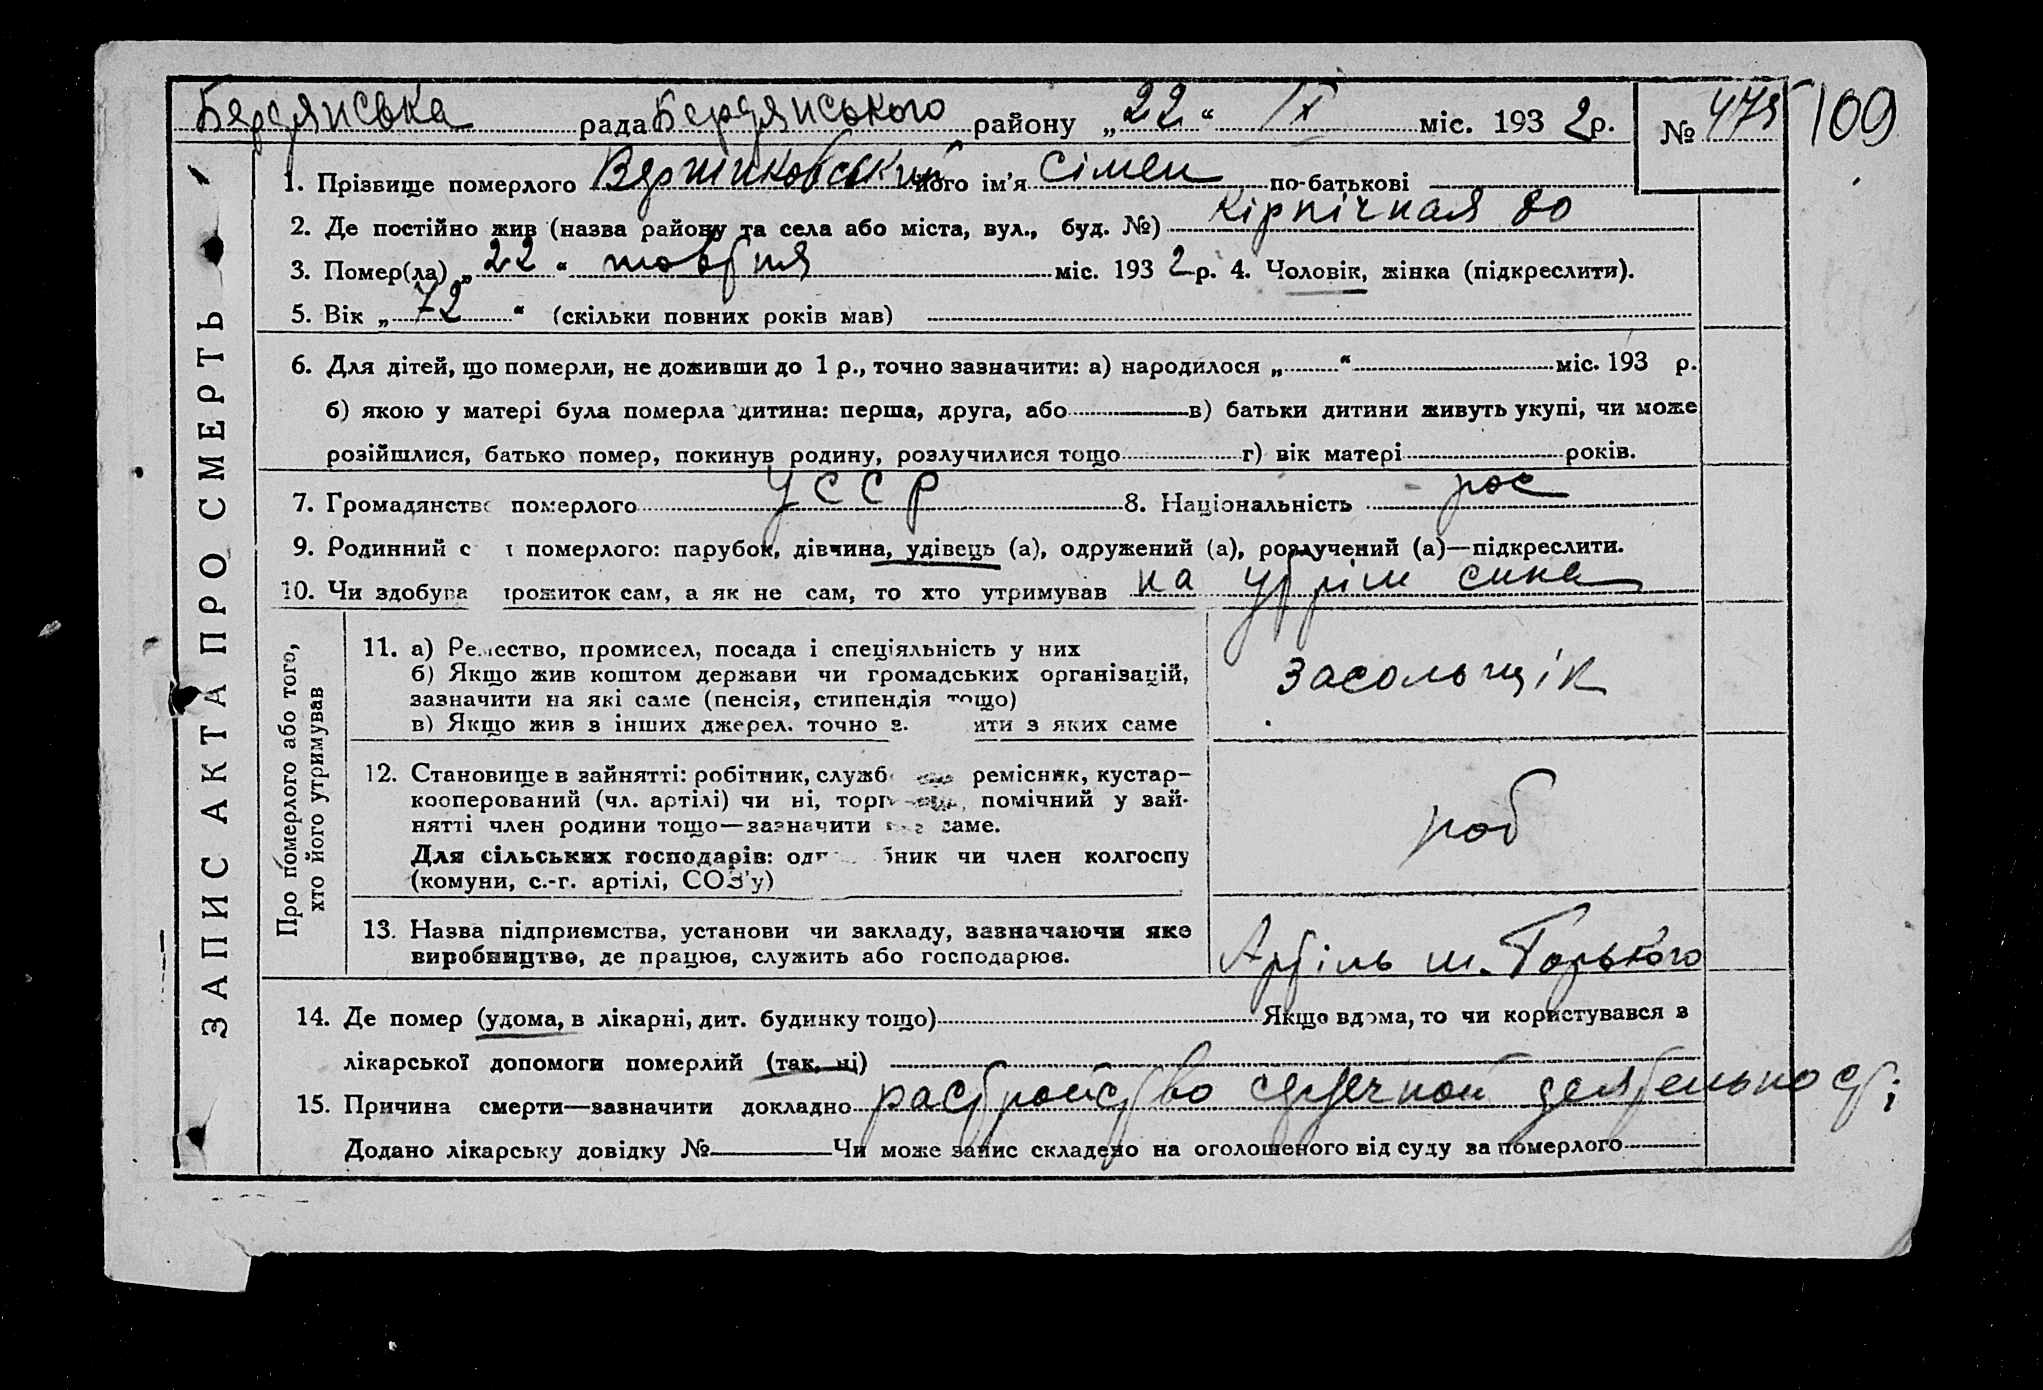 Бердянська рада Бердянського району „22“ ІХ міс. 1932р. № 475 109
ЗАПИС АКТА ПРО СМЕРТЬ
1. Прізвище померлого його ім’я Сімен по-батькові
2. Де постійно жив (назва району та села або міста, вул., буд. №) Кірпічная 80
3. Помер(ла) „22“ жовтня міс. 1932р. 4. Чоловік, жінка (підкреслити).
5. Вік „72“ (скільки повних років мав)
6. Для дітей, що померли, не доживши до 1 р., точно зазначити: а) народилося „ “ міс. 193 р.
б) якою у матері була померла дитина: перша, друга, або в) батьки дитини живуть укупі, чи може
розійшлися, батько помер, покинув родину, розлучилися тощо г) вік матері років.
7. Громадянство померлого УССР 8. Національність рос
9. Родинний с і померлого: парубок, дівчина, удівець (а), одружений (а), розлучений (а)—підкреслити.
10. Чи здобува прожиток сам, а як не сам, то хто утримував на утрім сина
Про померлого або того,
хто його утримував
11. а) Ремество, промисел, посада і спеціяльність у них
б) Якщо жив коштом держави чи громадських організацій,
зазначити на які саме (пенсія, стипендія тощо)
в) Якщо жив з інших джерел. точно з. ити з яких саме
засольщік
12. Становище в зайнятті: робітник, служб ремісник, кустар-
кооперований (чл. артілі) чи ні, торг помічний у зай-
нятті член родини тощо—зазначити саме.
Для сільських господарів: од бник чи член колгоспу
(комуни, с.-г. артілі, СОЗ’у)
роб
13. Назва підприємства, установи чи закладу, зазначаючи яке
виробництво, де працює, служить або господарює.
Артіль м. Горького
14. Де помер (удома, в лікарні, дит. будинку тощо) Якщо вдома, то чи користувався з
лікарської допомоги померлий (так, ні)
15. Причина смерти—зазначити докладно растройство сердечной деятельності
Додано лікарську довідку № Чи може запис складено на оголошеного від суду за померлого